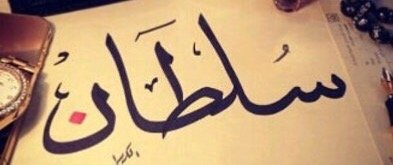 سُلطَان